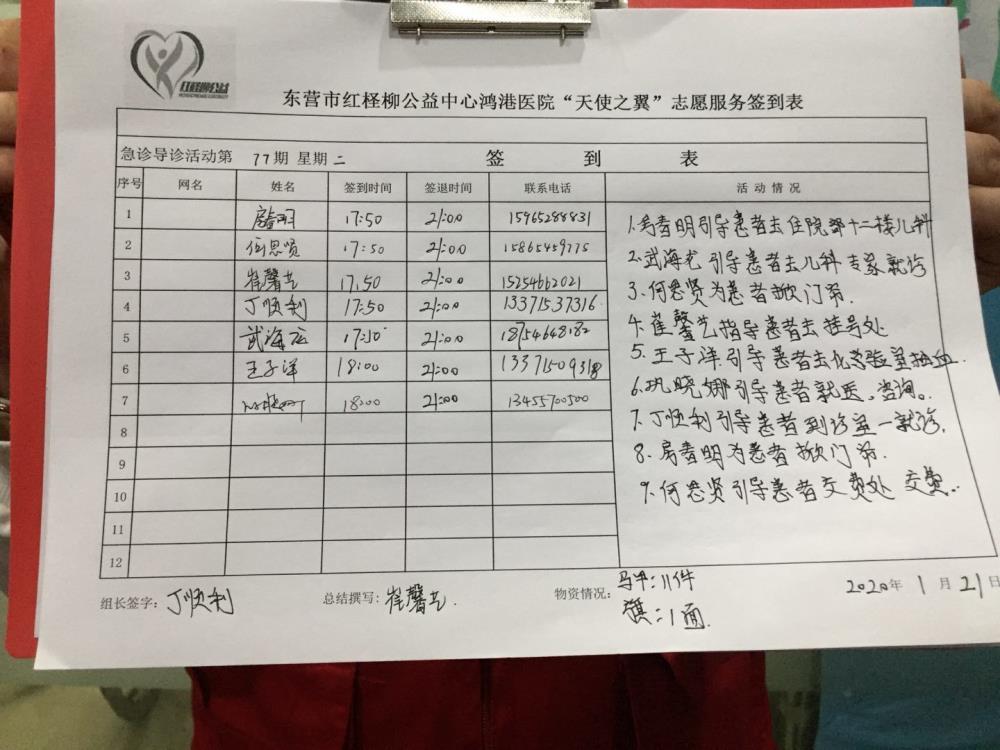 红柽柳公益
东营市红柽柳公益中心鸿港医院“天使之翼”志愿服务签到表
急诊导诊活动第 77期 星期二 签到表
序号 网名 姓名 签到时间 签退时间 联系电话 活动情况
1 17:50 21:00 15965288831
2 何思贤 17:50 21:00 15865459775
3 崔馨艺 17:50 21:00 15254662021
4 丁顺利 17:50 21:00 13371537316
5 武海 17:30 21:00 18754648182
6 王子洋 18:00 21:00 13371509318
7 18:00 21:00 13455700500
8
9
10
11
12
1.房春明引导患者去住院部十二楼儿科
2.武海 引导患者去儿科专家就诊
3.何思贤为患者掀门帘.
4.崔馨艺指导患者去挂号处
5.王子洋引导患者去化验室抽血.
6.巩晓娜引导患者就医。咨询。
7.丁顺利引导患者到诊室一就诊.
8.房春明为患者掀门帘.
9.何思贤引导患者交费处 交费..
组长签字：丁顺利 总结撰写：崔馨艺. 物资情况：马甲：11件
旗：1面.
2020年 1月21日